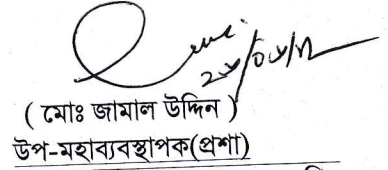 ( মোঃ জামাল উদ্দিন )
উপ-মহাব্যবস্থাপক(প্রশা)